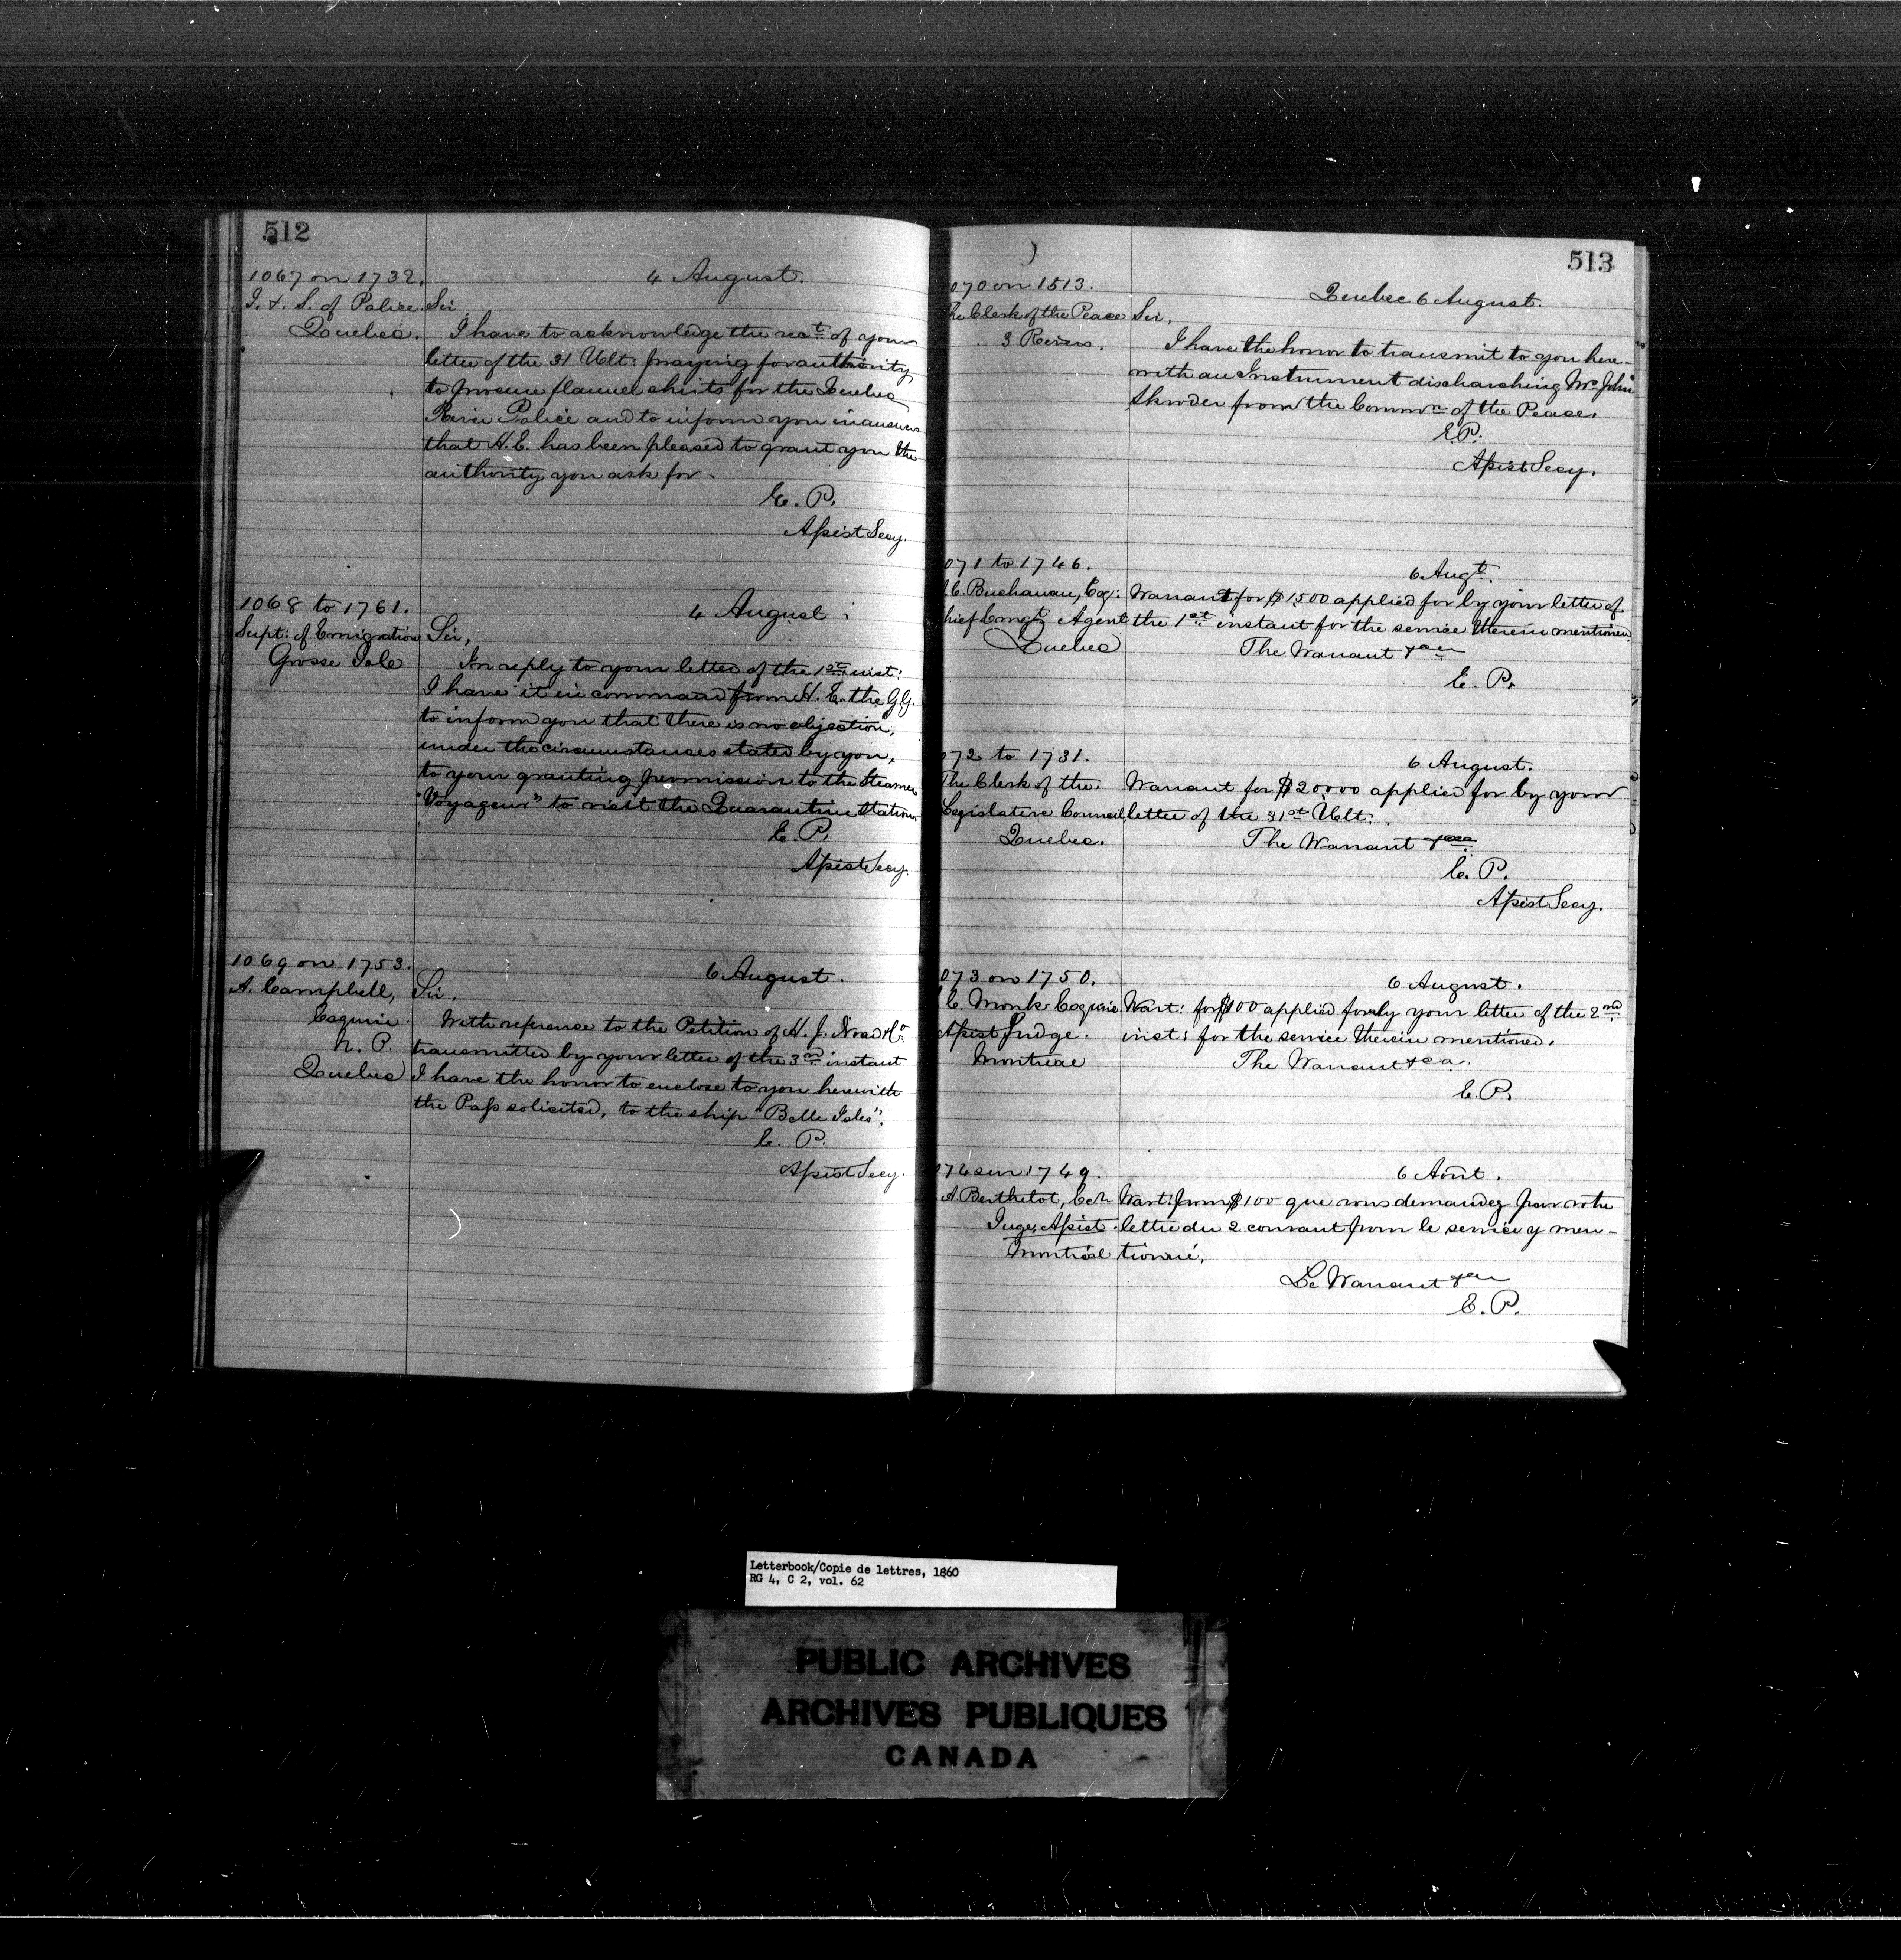 512
1067 on 1732.
4 August.
I. & S. of Police Sir
Quebec.
I have to acknowledge the rect of your
letter of the 31 Ult: praying for authority
to procure flannel shirts for the Quebec
River Police and to inform you in answer
that H.E. has been pleased to grant you the
authority you ask for.
E. P.
Assist Secy.
1068 to 1761.
4 August
Supt: of Emigration Sir,
Grosse Isle
In reply to your letter of the 1st inst:
I have it in command from H. E. the G.G.
to inform you that there is no objection,
under the circumstances stated by you,
to your granting permission to the Steamer
"Voyageur" to visit the Quarantine Station.
E. P.
Assist Secy.
1069 on 1753.
6 August.
A. Campbell, Sir.
Esquire.
N. P.
Quebec
With reference to the Petition of H. J. Noad & Co
transmitted by your letter of the 3rd instant
I have the honor to enclose to you herewith
the Pass solicited, to the ship "Belle Isles".
E. P.
Assist Secy.
513
070 on 1513.
Quebec 6 August.
The Clerk of the Peace Sir,
3 Rivers.
I have the honor to transmit to you here-
with an Instrument discharching Mr John
Skroder from the Commn of the Peace.
E.P.
Assist Secy.
071 to 1746.
6 Augt.
C. Buchanan, Esq: Warrant for $1500 applied for by your letter of
hief Emgt Agent the 1st instant for the service therein mentioned.
Quebec
The Warrant &ca
E. P.
072 to 1731.
6 August.
The Clerk of the Warrant for $20,000 applied for by your
Legislative Council letter of the 31st Ult:
Quebec.
The Warrant &ca
E. P.
Assist Secy.
073 on 1750.
6 August.
C. Monk Esquire Wart: for $100 applied for by your letter of the 2nd
Assist Judge. inst: for the service therein mentioned.
Montreal
The Warrant &ca.
E.P.
074 sur 1749.
6 Août.
A. Berthelot, Ecr Wart: pour $100 que vous demandez par votre
Juge Assist. lettre du 2 courant pour le service y men-
Montréal tionné.
Le Warrant &ca
E. P.
Letterbook/Copie de lettres, 1860
RG 4, C 2, vol. 62
PUBLIC ARCHIVES
ARCHIVES PUBLIQUES
CANADA